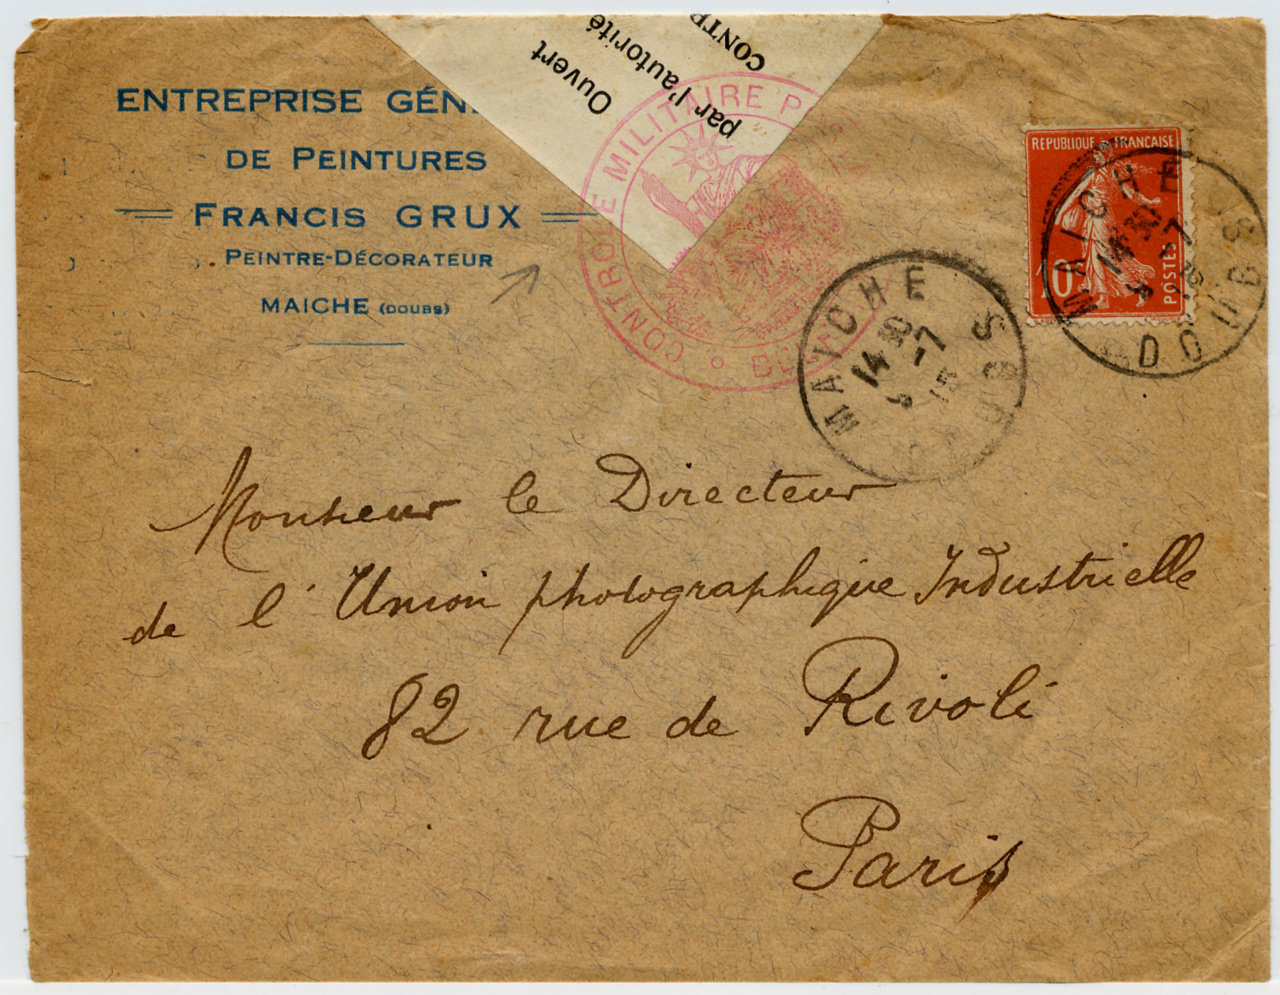 ENTREPRISE
DE PEINTURES
FRANCIS GRUX
PEINTRE-DÉCORATEUR
MAICHE (DOUBS)
Ouvert
par l'autorité
CONTR
CONTROLE MILITAIRE P
REPUBLIQUE FRANÇAISE
10
POSTES
MAICHE
14 30
-7
15
DOUBS
MAICHE
14 30
-7
15
DOUBS
Monsieur le Directeur
de l'Union photographique Industrielle
82 rue de Rivoli
Paris